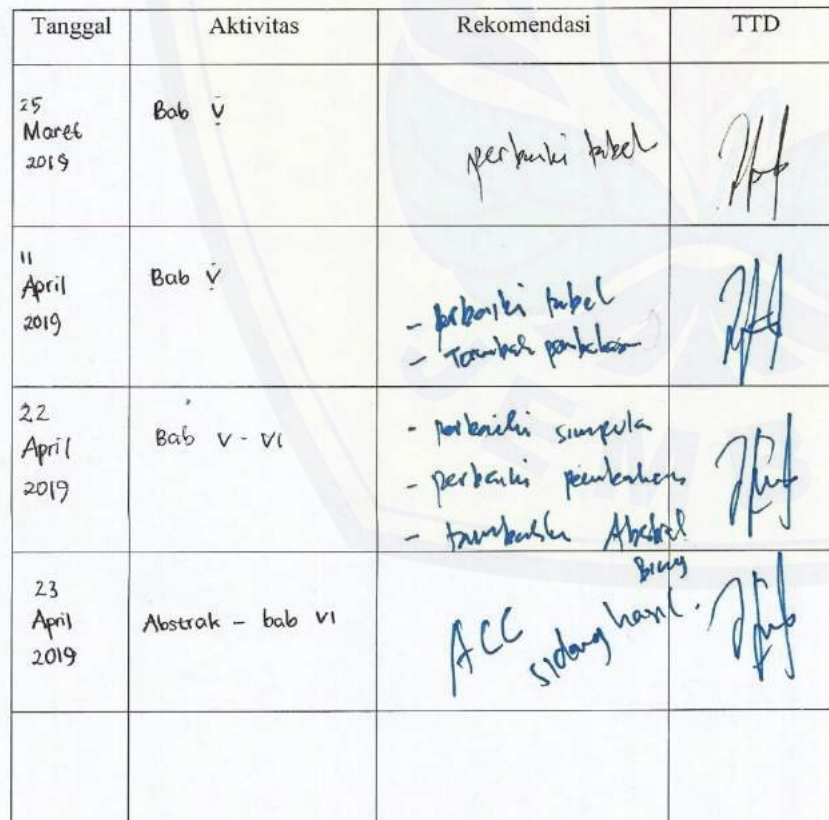 Tanggal Aktivitas Rekomendasi TTD
25
Maret
2019
Bab V
perbaiki tabel
11
April
2019
Bab V
- perbaiki tabel
- Tambah
22
April
2019
Bab V - VI
- perbaiki simpula
- perbaiki
- Abstrak
23
April
2019
Abstrak - bab VI
ACC
sidang hasil.